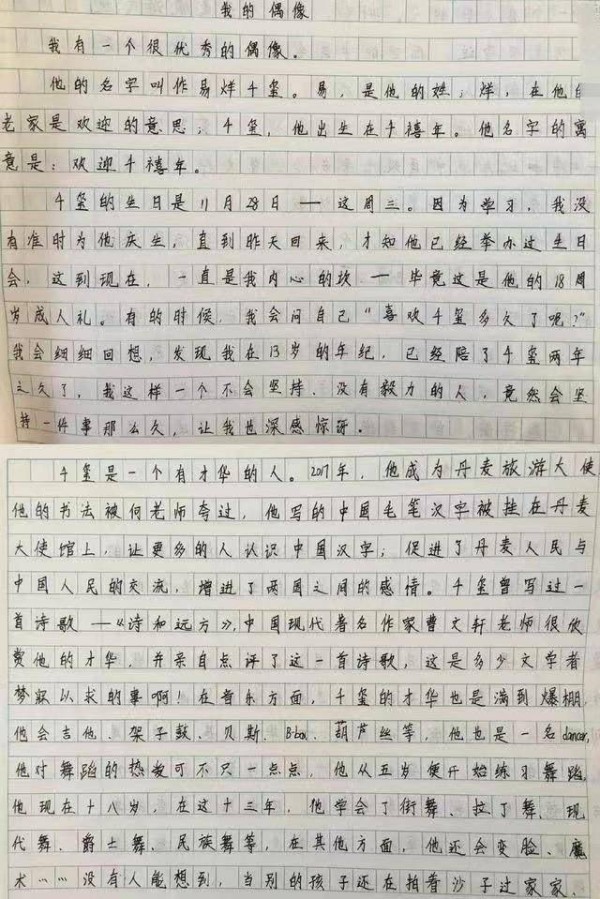 我的偶像
我有一个很优秀的偶像.
他的名字叫作易烊千玺。易，是他的姓；烊，在他
老家是欢迎的意思；千玺，他出生在千禧年。他名字的寓
意是：欢迎千禧年。
千玺的生日是11月28日——这周三。因为学习，我没
有准时为他庆生，直到昨天回来，才知他已经举办过生日
会，这到现在，一直是我内心的坎——毕竟这是他的18周
岁成人礼。有的时候，我会问自己“喜欢千玺多久了呢?”
我会细细回想，发现我在13岁的年纪，已经陪了千玺两年
之久了，我这样一个不会坚持、没有毅力的人，竟然会坚
持一件事那么久，让我也深感惊讶。
千玺是一个有才华的人。2017年，他成为丹麦旅游大使
他的书法被何老师夸过，他写的中国毛笔汉字被挂在丹麦
大使馆上，让更多的人认识中国汉字；促进了丹麦人民与
中国人民的交流，增进了两国之间的感情。千玺曾写过一
首诗歌——《诗和远方》，中国现代著名作家曹文轩老师很欣
赏他的才华，并亲自点评了这一首诗歌，这是多少文学者
梦寐以求的事啊！在音乐方面，千玺的才华也是满到爆棚，
他会吉他、架子鼓、贝斯、B-box、葫芦丝等，他也是一名dancer，
他对舞蹈的热爱可不只一点点，他从五岁便开始练习舞蹈，
他现在十八岁，在这十三年，他学会了街舞、拉丁舞、现
代舞、爵士舞、民族舞等，在其他方面，他还会变脸、魔
术……没有人能想到，当别的孩子还在拍着沙子过家家、